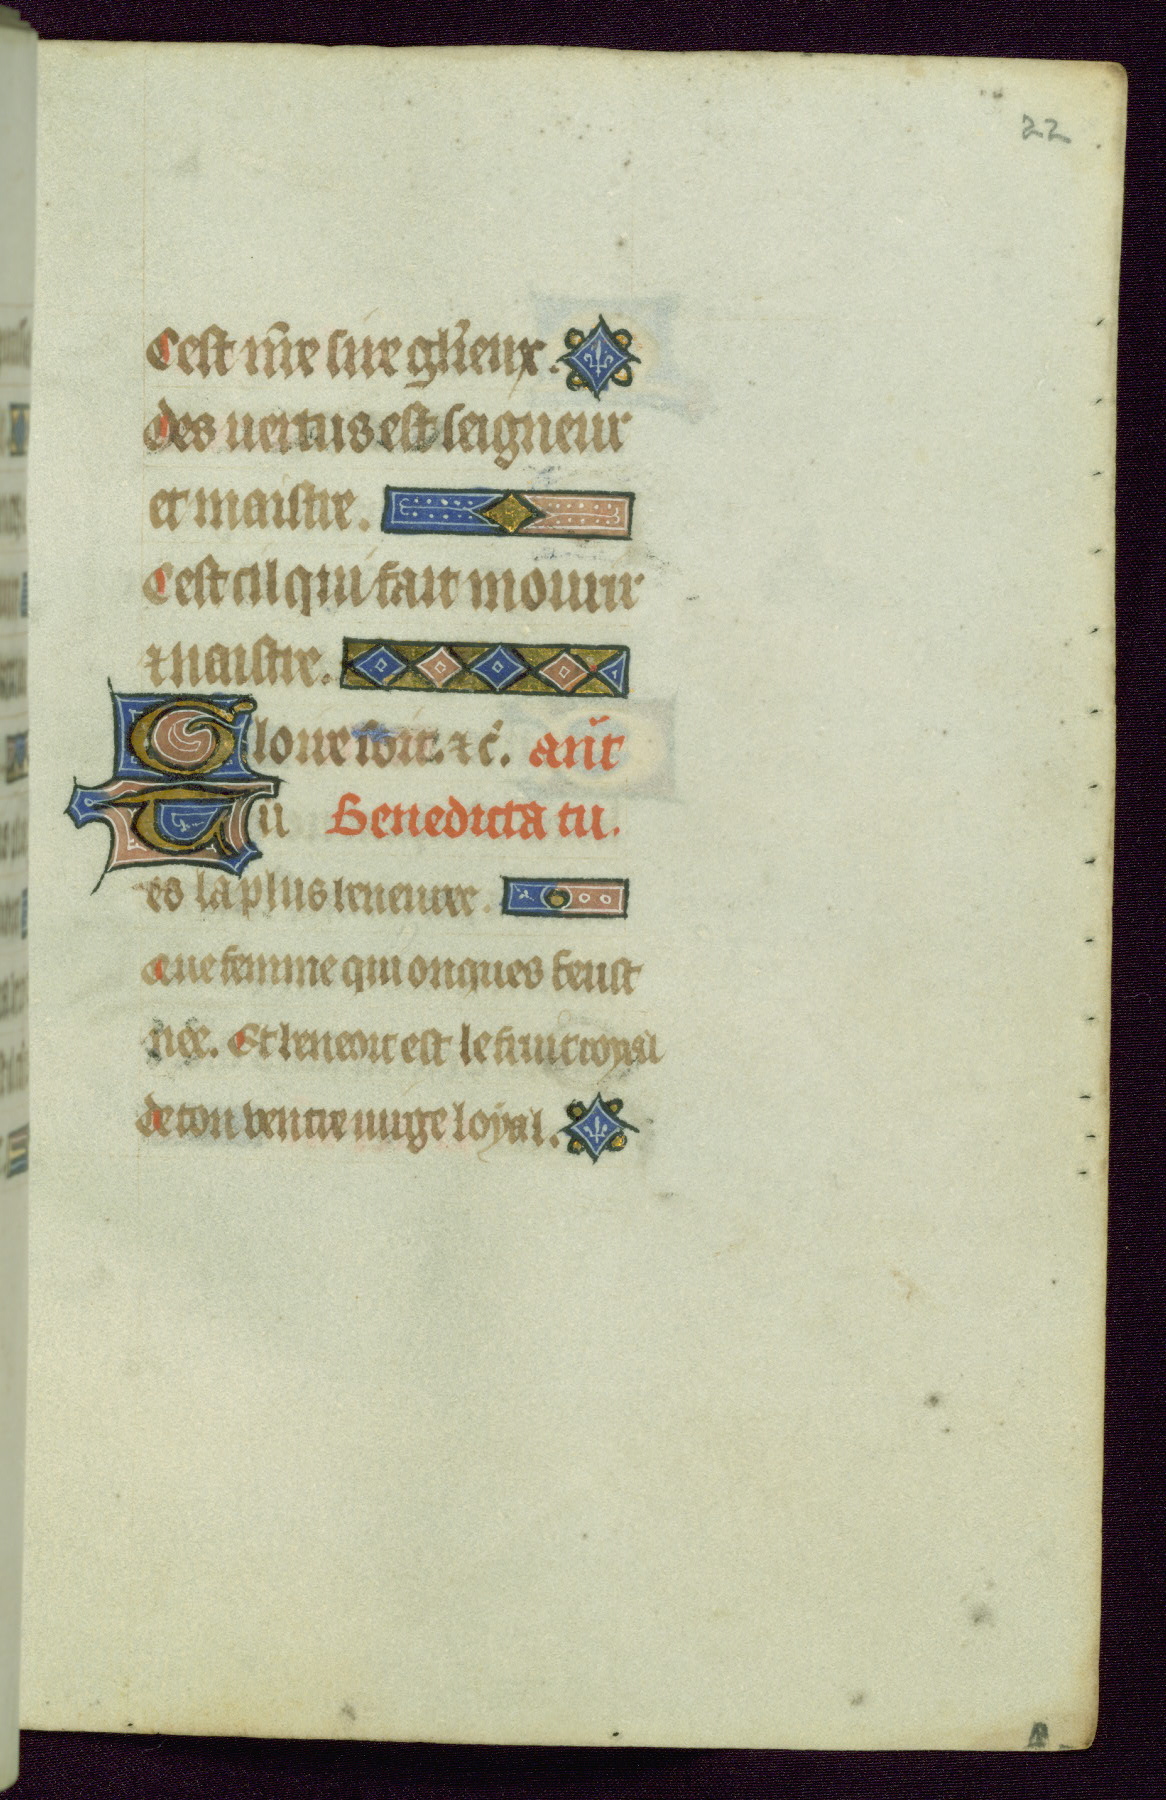 22
C'est nr̄e sire gl'ieux.
des uertus est seigneur
et maistre.
C'est cil qui fait mourir
⁊ naistre.
Gloire soit. ⁊ c̄. ant̄
Tu Benedicta tu.
es la plus beneuree.
Que femme qui onques feust
nee. Et beneoit est le fruit royal
de ton ventre uirge loyal.